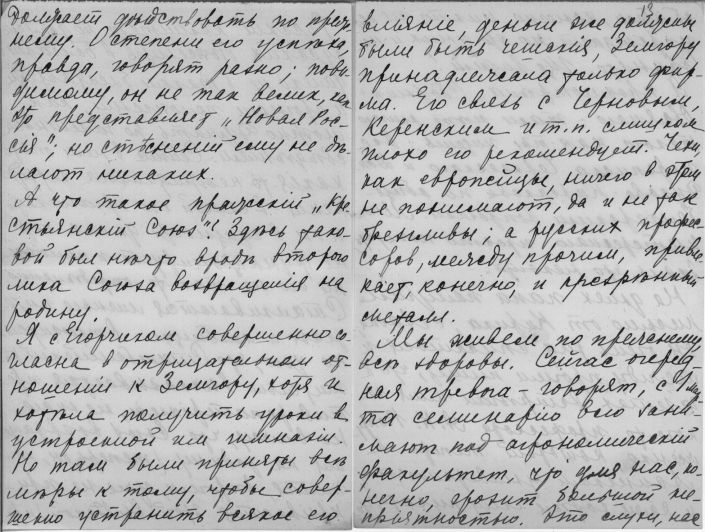 должает действовать по преж-
нему. О степени его успеха,
правда, говорят разно; пови-
димому, он не так велик, как
это представляет „Новая Рос-
сія“; но стѣсненій ему не дѣ-
лают никаких.
А что такое пражскій „Кре-
стьянскій Союз“? Здѣсь тако-
вой был нѣчто вродѣ второго
лика Союза возвращенія на
родину.
Я с Егорчиком совершенно со-
гласна в отрицательном от-
ношеніи к Земгору, хотя и
хотѣла получить уроки в
устроенной им гимназіи.
Но там были приняты всѣ
мѣры к тому, чтобы совер-
шенно устранить всякое его
13
вліяніе, деньги же должны
были быть чешскія, Земгору
принадлежала только фир-
ма. Его связь с Черновым,
Керенским и т.п. слишком
плохо его рекомендует. Чехи,
как европейцы, ничего в этом
не понимают, да и не так
брезгливы; а русских профес-
соров, между прочим, привле-
кает, конечно, и презрѣнный
металл.
Мы живем по прежнему,
всѣ здоровы. Сейчас очеред-
ная тревога – говорят, с 1 мар-
та семинарію всю зани-
мают под агрономическій
факультет, что для нас, ко-
нечно, грозит большой не-
пріятностью. Это слухи, нас